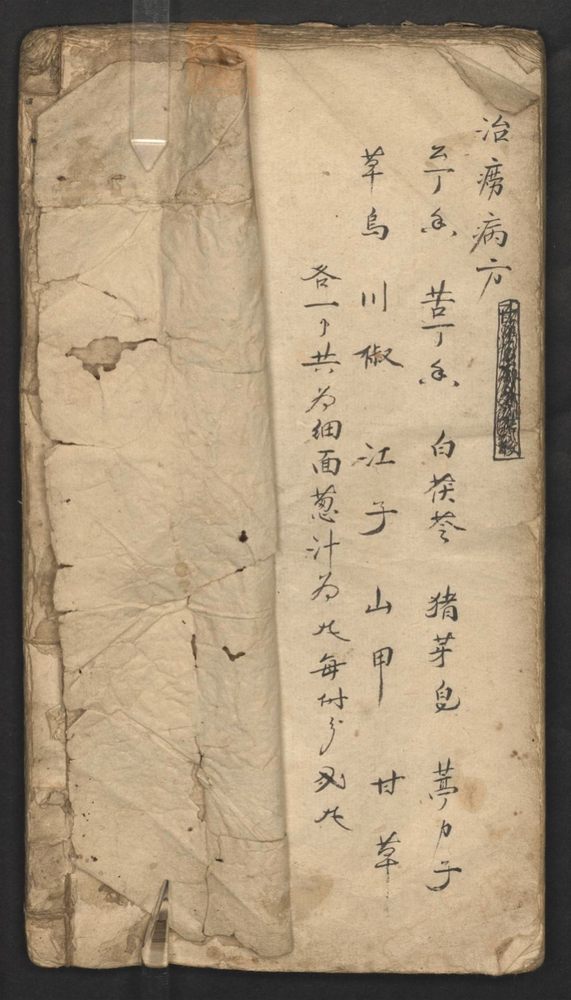 治痨病方
公丁香 苦丁香 白茯苓 猪芽皂 葶力子
草烏 川椒 江子 山甲 甘草
各一个共为细面葱汁为丸每付分丸